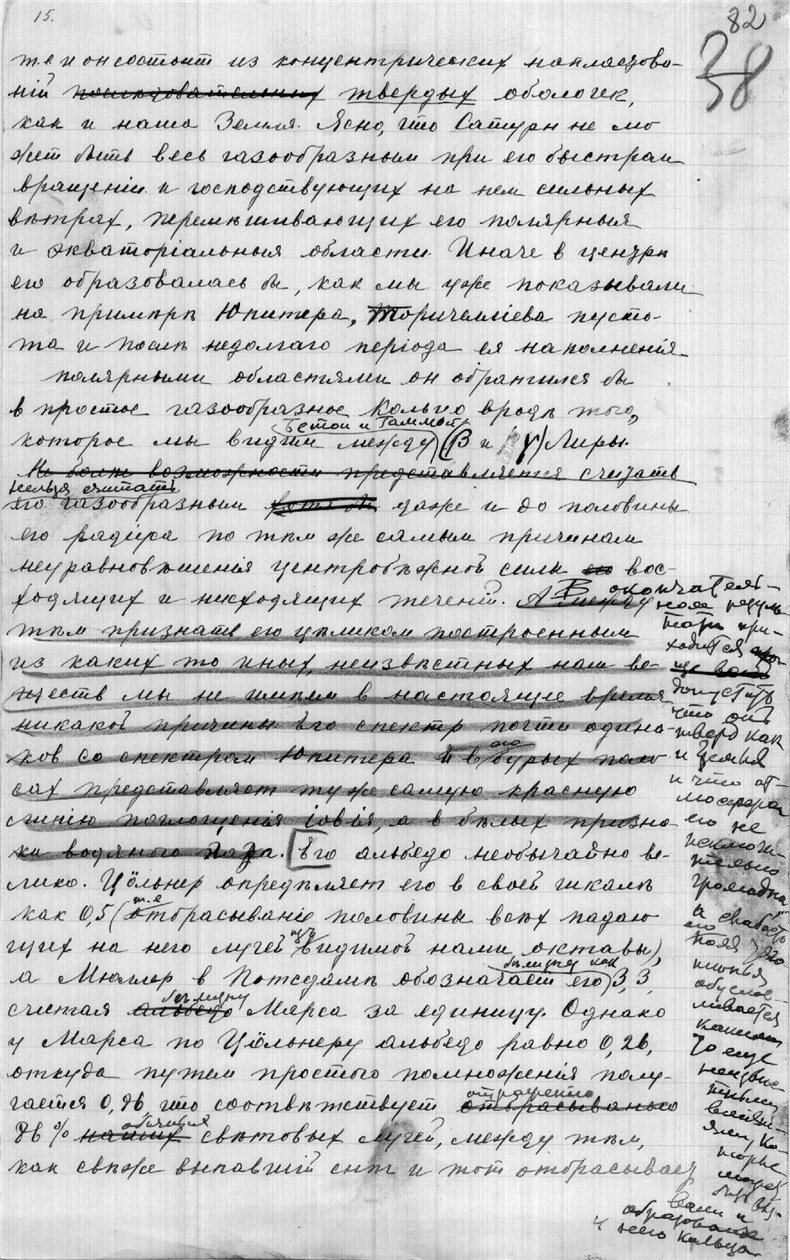 15.
82
38
же и он состоит из концентрических напластова-
ній последовательных твердых оболочек,
как и наша Земля. Ясно, что Сатурн не мо
жет быть весь газообразным при его быстром
вращеніи и господствующих на нем сильных
вѣтрах, перемѣшивающих его полярныя
и экваторіальныя области. Иначе в центрѣ
его образовалась бы, как мы уже показывали
на примѣрѣ Юпитера, Торичелліева пусто-
та и послѣ недолгаго періода ея наполненія
полярными областями он обратился бы
в простое газообразное кольцо вродѣ того,
Бетой и Гаммой
которое мы видим между (β и γ) Лиры.
Не болѣе возможности представляется считать
нельзя считать
его газообразным хотя бы даже и до половины
его радіуса по тѣм же самым причинам
неуравновѣшенія центробѣжной силы его вос-
ходящих и нисходящих теченій. А между
тѣм признать его цѣликом построенным
из каких то иных, неизвѣстных нам ве-
ществ мы не имѣем в настоящее время
никакой причины Его спектр почти одина-
ков со спектром Юпитера и в его бурых поло
сах представляет ту же самую красную
линію поглощенія іовія, а в бѣлых призна-
ки водяного пара. [Его альбедо необычайно ве-
лико. Цöльнер опредѣляет его в своей шкалѣ
как 0,5 (т.е отбрасываніе половины всѣх падаю
щих на него лучей видимой нами октавы),
бѣлизну как
а Мюллер в Потсдамѣ обозначает его) 3,3,
бѣлизну
считая альбедо Марса за единицу. Однако
у Марса по Цöльнеру альбедо равно 0,26,
откуда путем простого помноженія полу-
отраженію
чается 0,86 что соотвѣтствует отбрасыванью
обычных
86% наших свѣтовых лучей, между тѣм,
как свѣже выпавшій снѣг и тот отбрасывает
В окончатель-
ном резуль-
татѣ при-
ходится
допустить
что он
тверд как
и Земля
и что ат-
мосфера
его не
исключи-
тельно
громадна
а слабость
его
обуслов-
ливается
какими
то еще
неизвѣс-
тными
которые
могли
быть выз-
ваны и
образованье
у него кольца